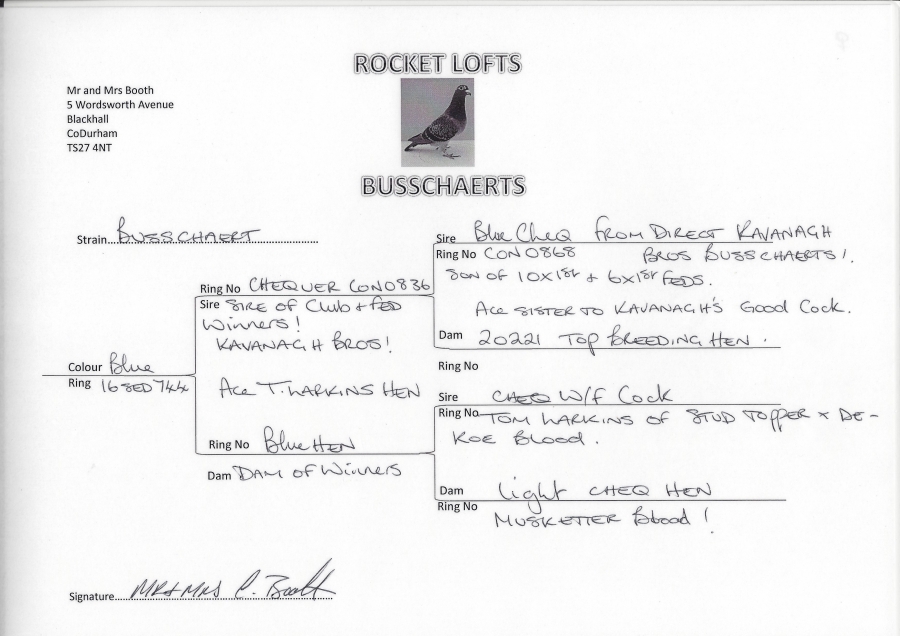 ROCKET LOFTS
Mr and Mrs Booth
5 Wordsworth Avenue
Blackhall
CoDurham
TS27 4NT
BUSSCHAERTS
Strain BUSSCHAERT
Sire Blue CheQ FROM DIRECT KAVANAGH
Ring No CON0868 BROS BUSSCHAERTS!.
SON OF 10X1st + 6x1st FEDS.
Ace SISTER TO KAVANAGH'S Good Cock.
Dam 20221 Top BREEDING HEN.
Ring No
Ring No CHEQUER CON0836
Sire SIRE OF Club + FED
Winners!
KAVANAGH BROS!
Colour Blue
Ring 16SED744
Ace T. LARKINS HEN
Ring No Blue HEN
Dam DAM OF Winners
Sire CHEQ W/F Cock
Ring No TOM LARKINS OF STUD TOPPER x DE-
KOE BLOOD.
Dam Light CHEQ HEN
Ring No
MUSKETTER Blood!
Signature MR+MRS C. Booth